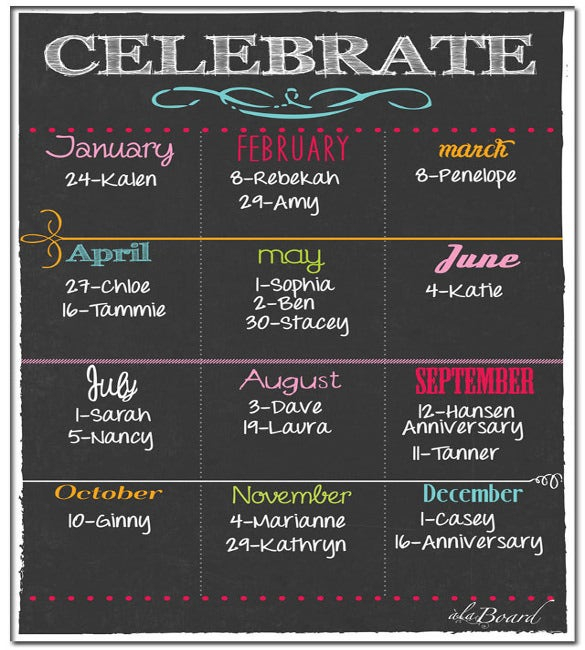 CELEBRATE
January
24-Kalen
FEBRUARY
8-Rebekah
29-Amy
march
8-Penelope
April
27-Chloe
16-Tammie
may
1-Sophia
2-Ben
30-Stacey
June
4-Katie
July
1-Sarah
5-Nancy
August
3-Dave
19-Laura
SEPTEMBER
12-Hansen
Anniversary
11-Tanner
October
10-Ginny
November
4-Marianne
29-Kathryn
December
1-Casey
16-Anniversary
àlaBoard